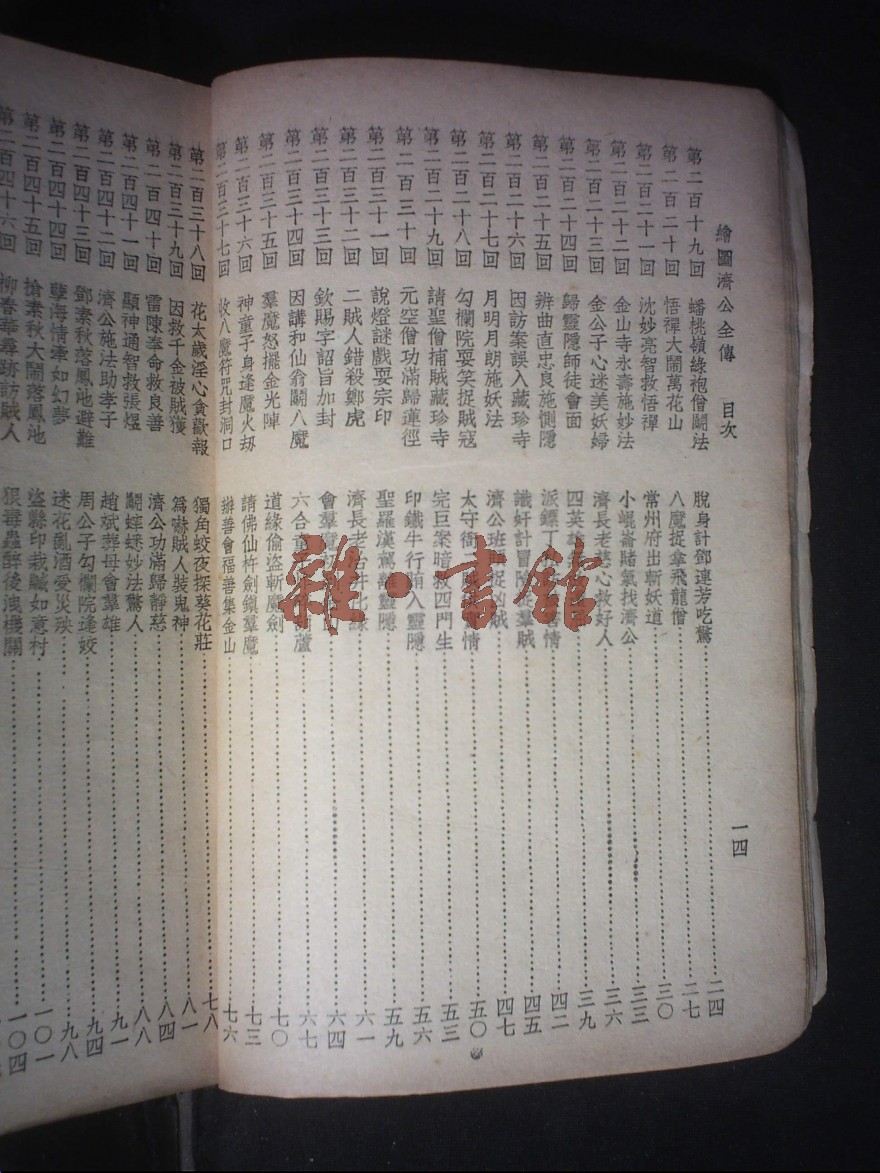 繪圖濟公全傳 目次 一四
第二百十九回 蟠桃嶺綠袍僧鬭法 脫身計鄧連芳吃驚 二四
第二百二十回 悟禪大鬧萬花山 八魔捉拿飛龍僧 二七
第二百二十一回 沈妙亮智救悟禪 常州府出斬妖道 三〇
第二百二十二回 金山寺永壽施妙法 小崐崙賭氣找濟公 三三
第二百二十三回 金公子心迷美妖婦 濟長老慈心救好人 三六
第二百二十四回 歸靈隱師徒會面 四英雄 三九
第二百二十五回 辨曲直忠良施惻隱 派鏢丁 情 四二
第二百二十六回 因訪案誤入藏珍寺 識奸計冒險捉羣賊 四五
第二百二十七回 月明月朗施妖法 濟公班 捉凶賊 四七
第二百二十八回 勾欄院耍笑捉賊寇 太守衙二 情 五〇
第二百二十九回 請聖僧捕賊藏珍寺 完巨案暗救四門生 五三
第二百三十回 元空僧功滿歸蓮徑 印鐵牛行賄入靈隱 五六
第二百三十一回 說燈謎戲耍宗印 聖羅漢駕離靈隱 五九
第二百三十二回 二賊人錯殺鄭虎 濟長老治井化緣 六一
第二百三十三回 欽賜字詔旨加封 會羣魔 六四
第二百三十四回 因講和仙翁鬭八魔 六合童子 葫蘆 六七
第二百三十五回 羣魔怒擺金光陣 道緣偷盜斬魔劍 七〇
第二百三十六回 神童子身逢魔火劫 請佛仙杵劍鎮羣魔 七三
第二百三十七回 收八魔符咒封洞口 辦善會福善集金山 七六
第二百三十八回 花太歲淫心貪歡報 獨角蛟夜探葵花莊 七八
第二百三十九回 因救千金被賊獲 爲嚇賊人裝鬼神 八一
第二百四十回 雷陳奉命救良善 濟公功滿歸靜慈 八四
第二百四十一回 顯神通智救張煜 鬭蟀蟋妙法驚人 八八
第二百四十二回 濟公施法助孝子 趙斌葬母會羣雄 九一
第二百四十三回 鄧素秋落鳳池避難 周公子勾欄院逢姣 九四
第二百四十四回 孽海情牽如幻夢 迷花亂酒愛災殃 九八
第二百四十五回 搶素秋大鬧落鳳池 盜縣印栽贓如意村 一〇一
第二百四十六回 柳春華尋跡訪賊人 狠毒蟲醉後洩機關 一〇四
雜·書館